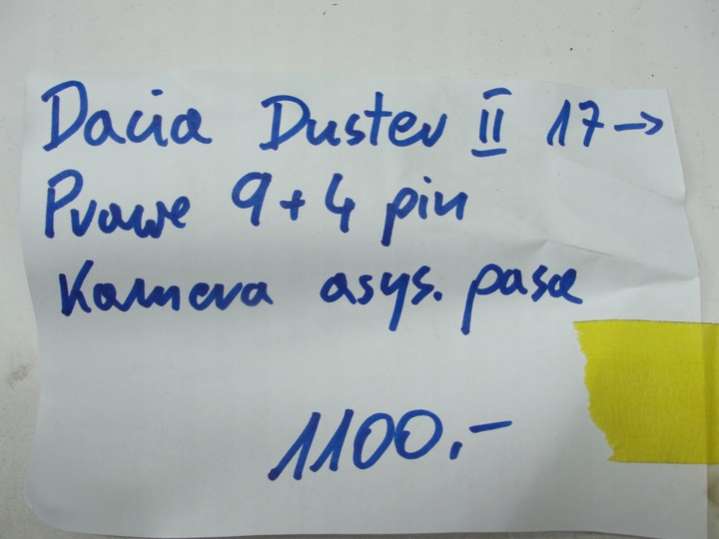 Dacia Duster II 17→
Prawe 9+4 pin
Kamera asys. pasa
1100,-